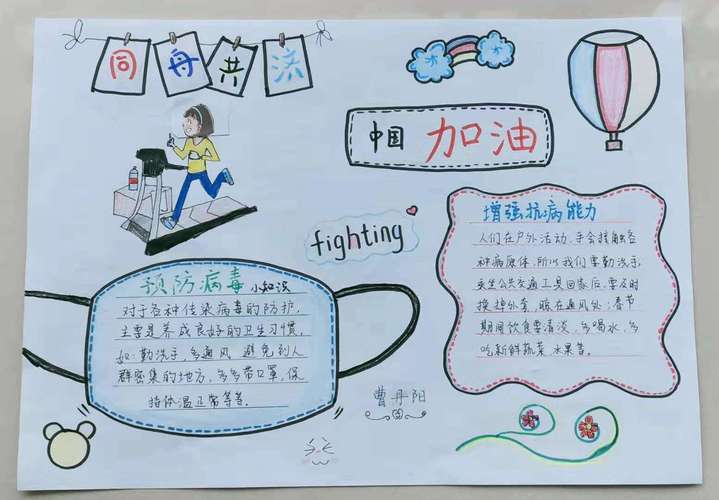 同舟共济
中国 加油
fighting
预防病毒 小知识
对于各种传染病毒的防护,
主要是养成良好的卫生习惯,
如:勤洗手,多通风 避免到人
群密集的地方,多多带口罩,保
持体温正常等等.
增强抗病能力
人们在户外活动,手会接触各
种病原体,所以我们要勤洗手,
乘坐公共交通工具回家后,要及时
换掉外套,晾在通风处;春节
期间饮食要清淡,多喝水,多
吃新鲜蔬菜 水果等.
曹丹阳